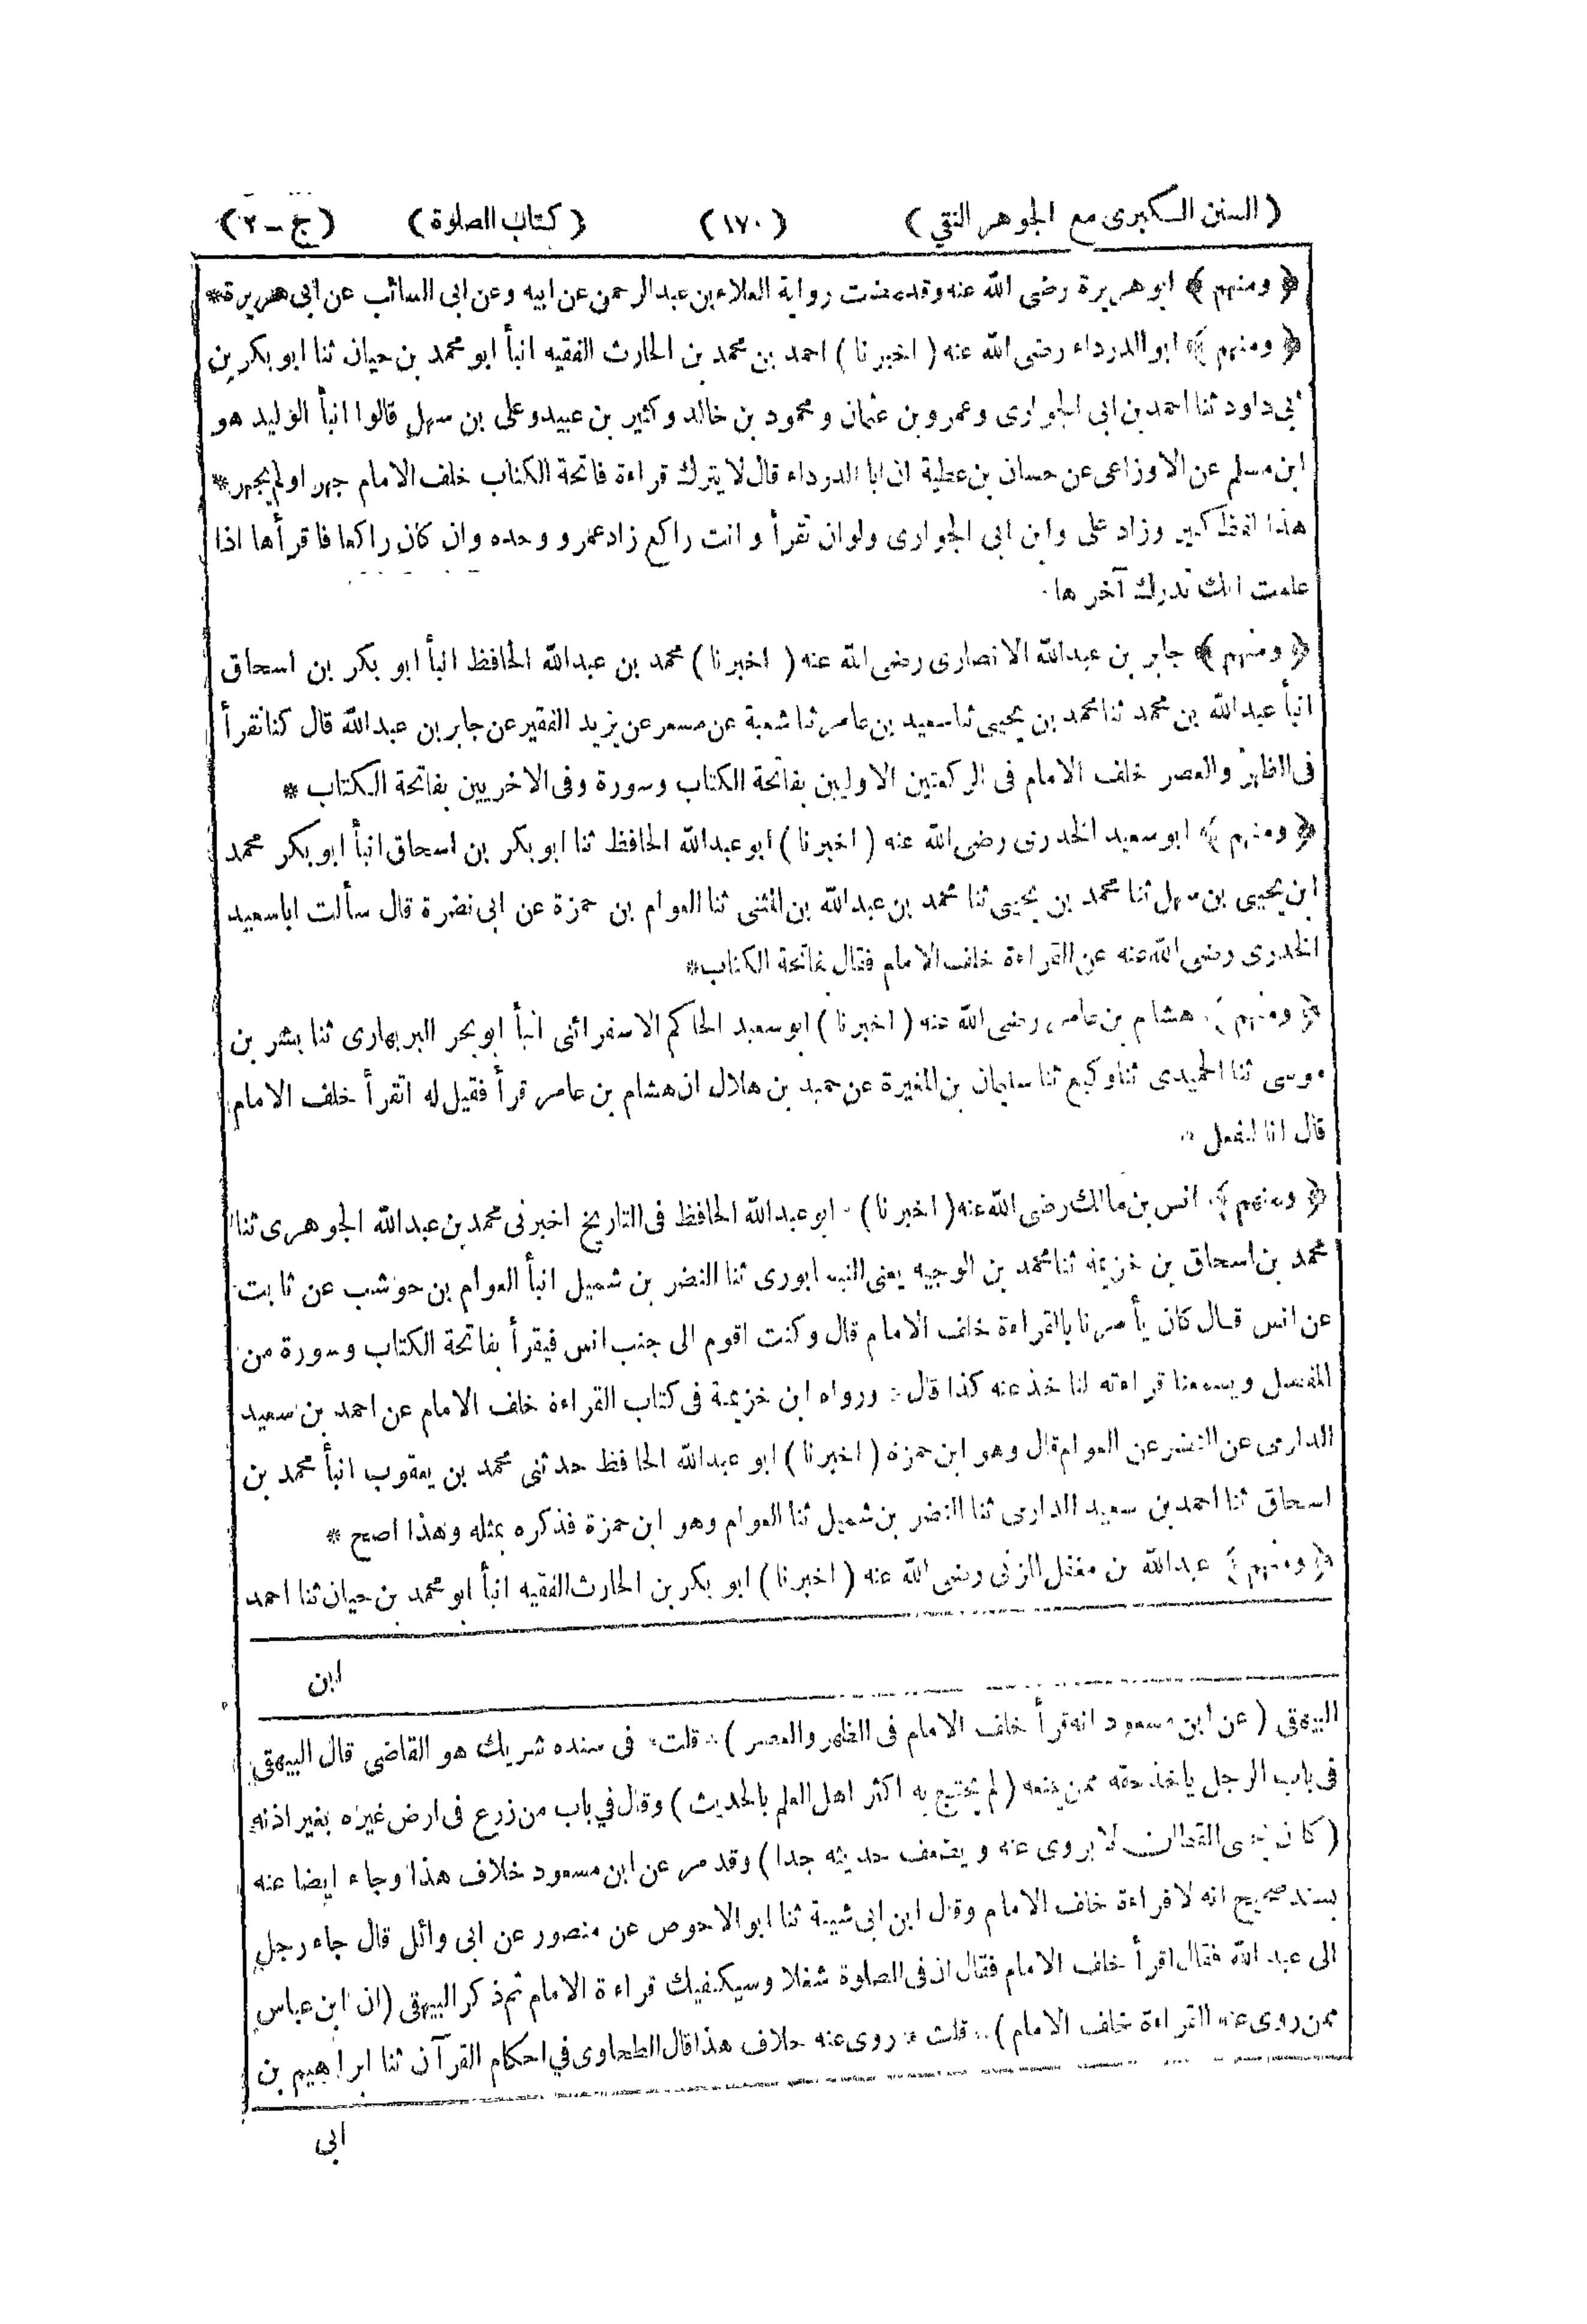 ( السنن الكبرى مع الجوهر النقي ) ( ١٧٠ ) ( كتاب الصلوة ) ( ج - ٢ )
﴿ ومنهم ﴾ ابو هريرة رضى الله عنه وقد مضت رواية العلاء بن عبدالرحمن عن ابيه وعن ابى السائب عن ابى هريرة *
﴿ ومنهم ﴾ ابو الدرداء رضى الله عنه ( اخبرنا ) احمد بن محمد بن الحارث الفقيه انبأ ابو محمد بن حيان ثنا ابو بكر بن
ابى داود ثنا احمد بن ابى الحوارى وعمرو بن عثمان و محمود بن خالد وكثير بن عبيد وعلى بن سهل قالوا انبأ الوليد هو
ابن مسلم عن الاوزاعى عن حسان بن عطية ان ابا الدرداء قال لا يترك قراءة فاتحة الكتاب خلف الامام جهر او لم يجهر *
هذا لفظ كثير وزاد على وابن ابى الحوارى ولو ان تقرأ و انت راكع زاد عمرو وحده وان كان راكعا فاقرأها اذا
علمت انك تدرك آخرها
﴿ ومنهم ﴾ جابر بن عبدالله الانصارى رضى الله عنه ( اخبرنا ) محمد بن عبدالله الحافظ انبأ ابو بكر بن اسحاق
انبأ عبدالله بن محمد ثنا محمد بن يحيى ثنا سعيد بن عامر ثنا شعبة عن مسعر عن يزيد الفقير عن جابر بن عبدالله قال كنا نقرأ
فى الظهر والعصر خلف الامام فى الركعتين الاوليين بفاتحة الكتاب وسورة وفى الاخريين بفاتحة الكتاب *
﴿ ومنهم ﴾ ابو سعيد الخدرى رضى الله عنه ( اخبرنا ) ابو عبدالله الحافظ ثنا ابو بكر بن اسحاق انبأ ابو بكر محمد
ابن يحيى بن سهل ثنا محمد بن يحيى ثنا محمد بن عبدالله بن المثنى ثنا العوام بن حمزة عن ابى نضرة قال سألت ابا سعيد
الخدرى رضى الله عنه عن القراءة خلف الامام فقال بفاتحة الكتاب *
﴿ ومنهم ﴾ هشام بن عامر رضى الله عنه ( اخبرنا ) ابو سعيد الحاكم الاسفرائنى انبأ ابو بحر البربهارى ثنا بشر بن
موسى ثنا الحميدى ثنا وكيع ثنا سليمان بن المغيرة عن حميد بن هلال ان هشام بن عامر قرأ فقيل له اتقرأ خلف الامام
قال انا لنفعل *
﴿ ومنهم ﴾ انس بن مالك رضى الله عنه ( اخبرنا ) ابو عبدالله الحافظ فى التاريخ اخبرنى محمد بن عبدالله الجوهرى ثنا
محمد بن اسحاق بن خزيمة ثنا محمد بن الوجيه يعنى النيسابورى ثنا النضر بن شميل انبأ العوام بن حوشب عن ثابت
عن انس قال كان يأمرنا بالقراءة خلف الامام قال وكنت اقوم الى جنب انس فيقرأ بفاتحة الكتاب وسورة من
المفصل ويسمعنا قراءته لنا خذ عنه كذا قال * ورواه ابن خزيمة فى كتاب القراءة خلف الامام عن احمد بن سعيد
الدارمى عن النضر عن العوام قال وهو ابن حمزة ( اخبرنا ) ابو عبدالله الحافظ حدثنى محمد بن يعقوب انبأ محمد بن
اسحاق ثنا احمد بن سعيد الدارمى ثنا النضر بن شميل ثنا العوام وهو ابن حمزة فذكره بمثله وهذا اصح *
﴿ ومنهم ﴾ عبدالله بن مغفل المزنى رضى الله عنه ( اخبرنا ) ابو بكر بن الحارث الفقيه انبأ ابو محمد بن حيان ثنا احمد
ابن
البيهقى ( عن ابن مسعود انه قرأ خلف الامام فى الظهر والعصر ) * قلت * فى سنده شريك هو القاضى قال البيهقى
فى باب الرجل ياخذ حقه ممن يمنعه ( لم يحتج به اكثر اهل العلم بالحديث ) وقال في باب من زرع فى ارض غيره بغير اذنه
( كان يحيى القطان لا يروى عنه و يضعف حديثه جدا ) وقد مر عن ابن مسعود خلاف هذا وجاء ايضا عنه
بسند صحيح انه لا قراءة خلف الامام وقال ابن ابى شيبة ثنا ابو الاحوص عن منصور عن ابى وائل قال جاء رجل
الى عبد الله فقال اقرأ خلف الامام فقال ان فى الصلوة شغلا وسيكفيك قراءة الامام ثم ذكر البيهقى ( ان ابن عباس
ممن روى عنه القراءة خلف الامام ) * قلت * روى عنه خلاف هذا قال الطحاوى في احكام القرآن ثنا ابراهيم بن
ابى